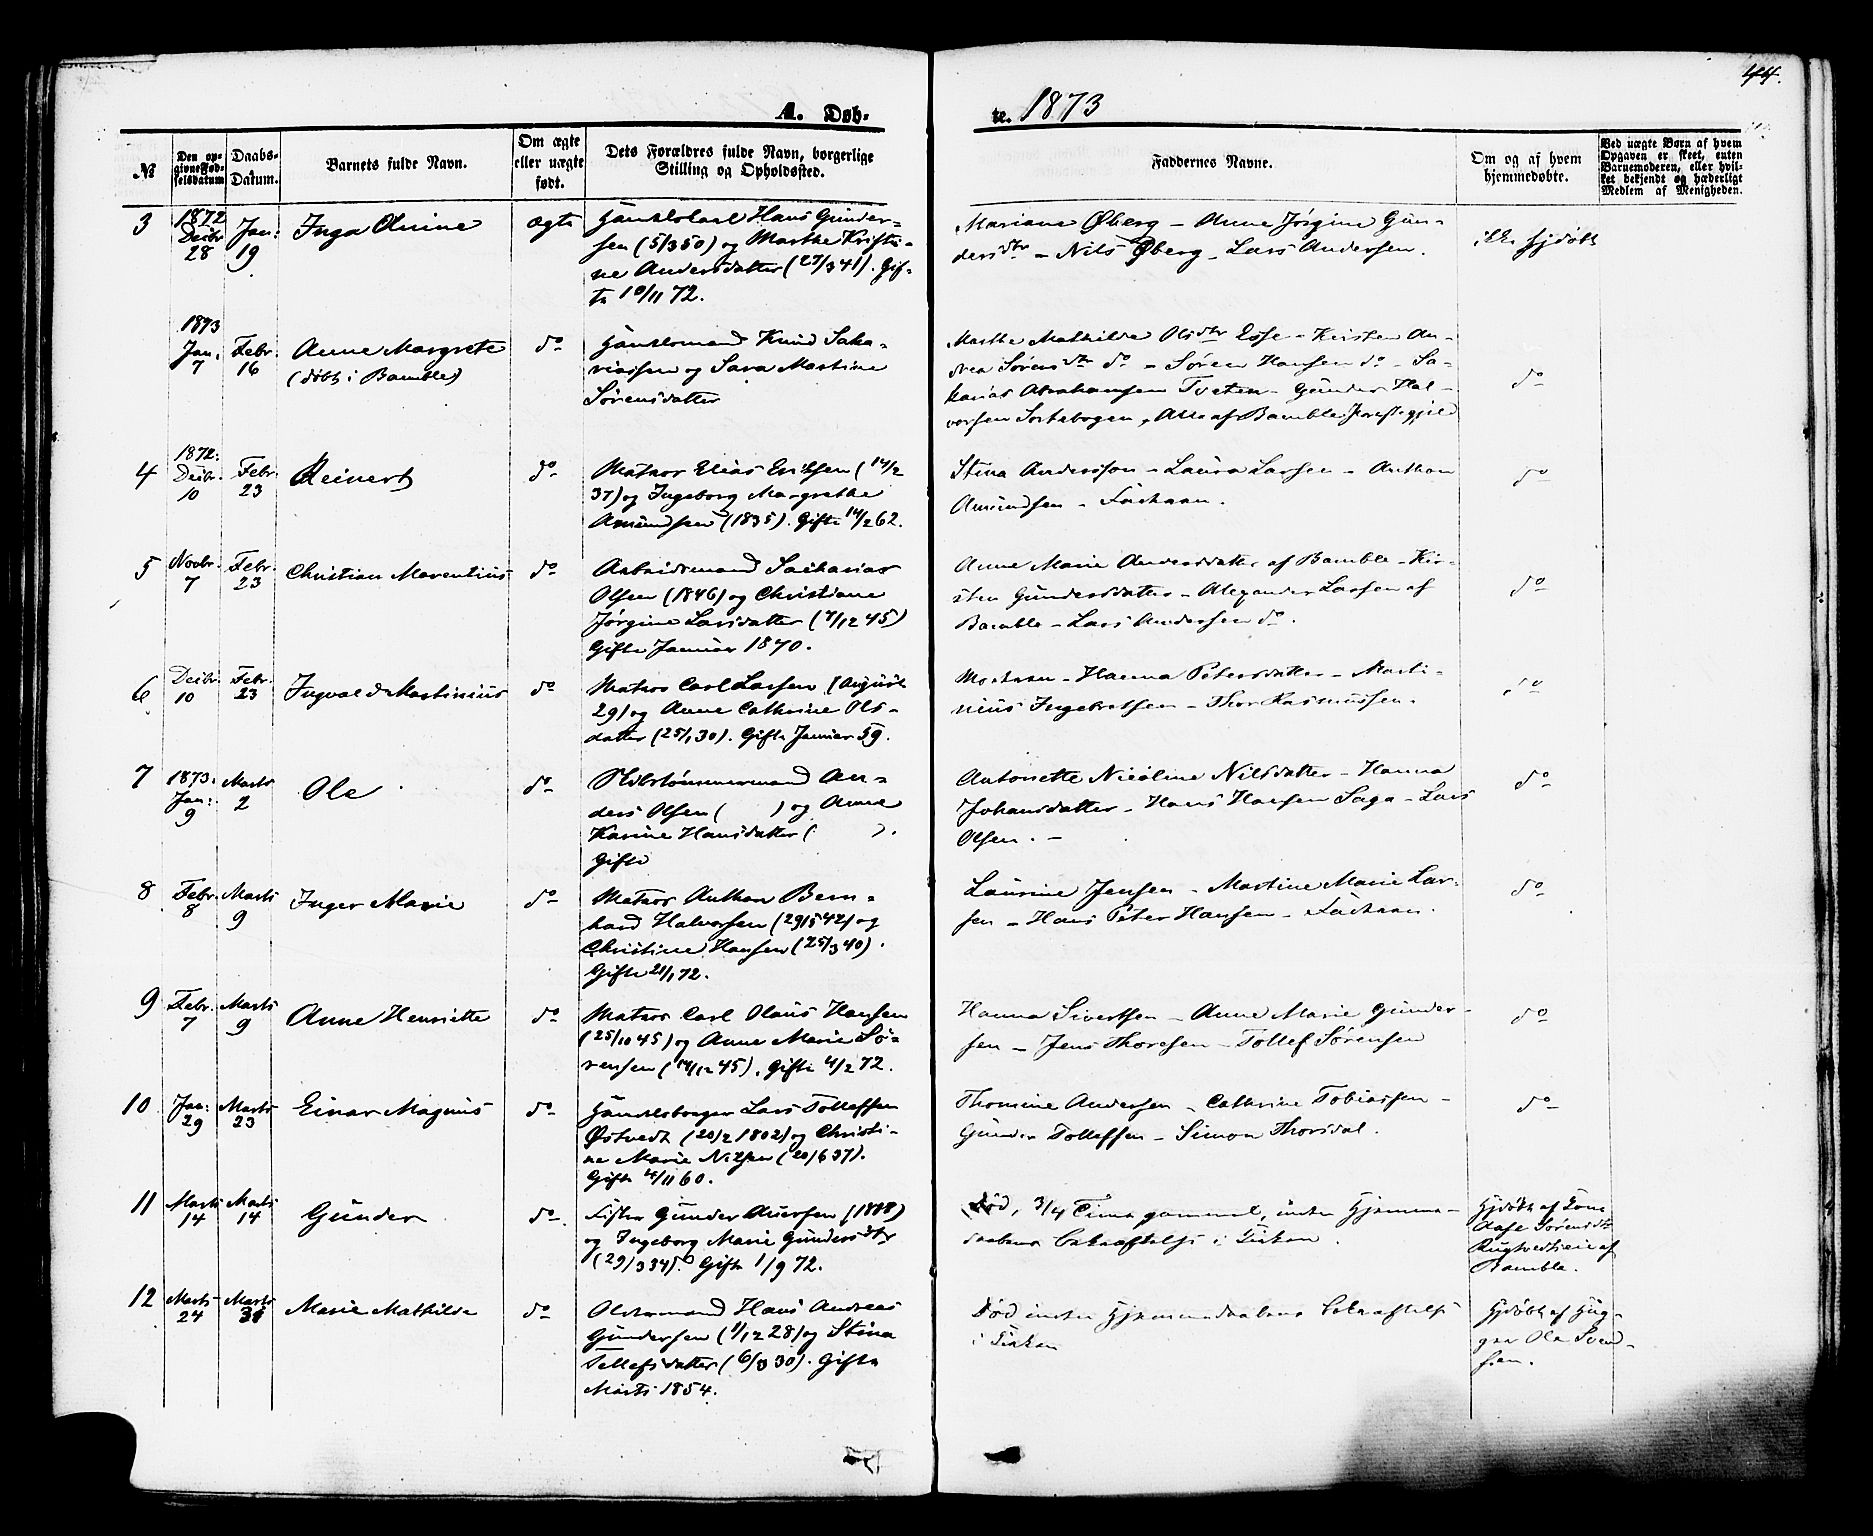 44.
A. Døb-
te. 1873
№
Den op-
givne Fød-
selsdatum
Daabs-
Datum.
Barnets fulde Navn.
Om ægte
eller uægte
født.
Dets Forældres fulde Navn, borgerlige
Stilling og Opholdssted.
Faddernes Navne.
Om og af hvem
hjemmedøbte.
Ved uægte Børn af hvem
Opgaven er skeet, enten
Barnemoderen, eller hvil-
ket bekjendt og hæderligt
Medlem af Menigheden.
3
1872
Decbr
28
Jan:
19
Inga Anine
ægte
Hans Gunder-
sen (5/3 50) og Marthe Kristi-
ne Andersdatter (27/3 41). Gif-
te 10/11 72.
Mariane Øberg – Anne Jørgine Gun-
dersdtr – Nils Øberg – Lars Andersen.
ikke hjdøbt
1873
Jan.
7
Febr.
16
Anne Margrete
(døbt i Bamble)
do
Huusmand Knud Saka-
riassen og Sara Martine
Sørensdatter
Marthe Mathilde Olsdtr – Kirsten An-
drea Sørensdtr do – Søren Hansen do – Sa-
karias Abrahamsen Tveten – Gunder Hal-
vorsen – Alle af Bamble Præstegjeld
do
4
1872:
Decbr.
10
Febr.
23
Reinert
do
Matros Elias Eriksen (14/2
37) og Ingeborg Margrethe
Amundsen (1835). Gifte 14/2 62.
Stina Andersson – Laura Larsen – Anthon
Amundsen – Faderen.
do
5
Novbr.
7
Febr.
23
Christian Marentius
do
Arbeidsmand Sacharias
Olsen (1846) og Christiane
Jørgine Larsdatter (7/12 45)
Gifte Januar 1870.
Anne Marie Andersdatter af Bamble – Kir-
sten Gundersdatter – Alexander Larsen af
Bamble – Lars Andersen do.
do
6
Decbr.
10
Febr.
23
Ingvald Martinius
do
Matros Carl Larsen (August
29) og Anne Cathrine Ols-
datter (25/1 30). Gifte Januar 59.
Moderen – Hanna Petersdatter – Marti-
nius Ingebretsen – Thor Rasmussen.
do
7
1873:
Jan:
9
Marts
2
Ole
do
Skibstømmermand An-
ders Olsen ( ) og Anne
Karine Hansdatter ( ).
Gifte
Antonette Nicoline Nilsdatter – Hanna
Johansdatter – Hans Hansen Saga – Lars
Olsen. –
do
8
Febr.
8
Marts
9
Inger Marie
do
Matros Anthon Bern-
hard Halvorsen (29/5 42) og
Christine Hansen (25/3 40).
Gifte 21/1 72.
Laurine Jensen – Martine Marie Lar-
sen – Hans Peter Hansen – Faderen.
do
9
Febr.
7
Marts
9
Anne Henriette
do
Matros Carl Olaus Hansen
(25/10 45) og Anne Marie Sø-
rensen (14/12 45). Gifte 4/2 72.
Hanna Sivertsen – Anne Marie Gunder-
sen – Jens Thoresen – Tollef Sørensen
do
10
Jan:
29
Marts
23
Einar Magnus
do
Lars Tollefsen
Østvedt (20/2 1802) og Christi-
ne Marie Nilsen (20/6 37).
Gifte 4/11 60.
Thomine Andersen – Cathrine Tobiassen –
Gunder Tollefsen – Simon Thorsdal.
do
11
Marts
14
Marts
14
Gunder
do
Fisker Gunder
og Ingeborg Marie Gundersdtr
(29/3 34). Gifte 1/9 72.
Død, 3/4 Time gammel, inden Hjemme-
daabens Bekræftelse i Kirken.
Hjdøbt af
Sørensdtr
af
Bamble.
12
Marts
24
Marts
31
Marie Mathilde
do
Hans Andreas
Gundersen (1/12 28) og Stina
Tellefsdatter (6/3 30). Gifte
Marts 1854.
Død inden Hjemmedaabens Bekræftelse
i Kirken
Hjdøbt af
Ole Svend-
sen.